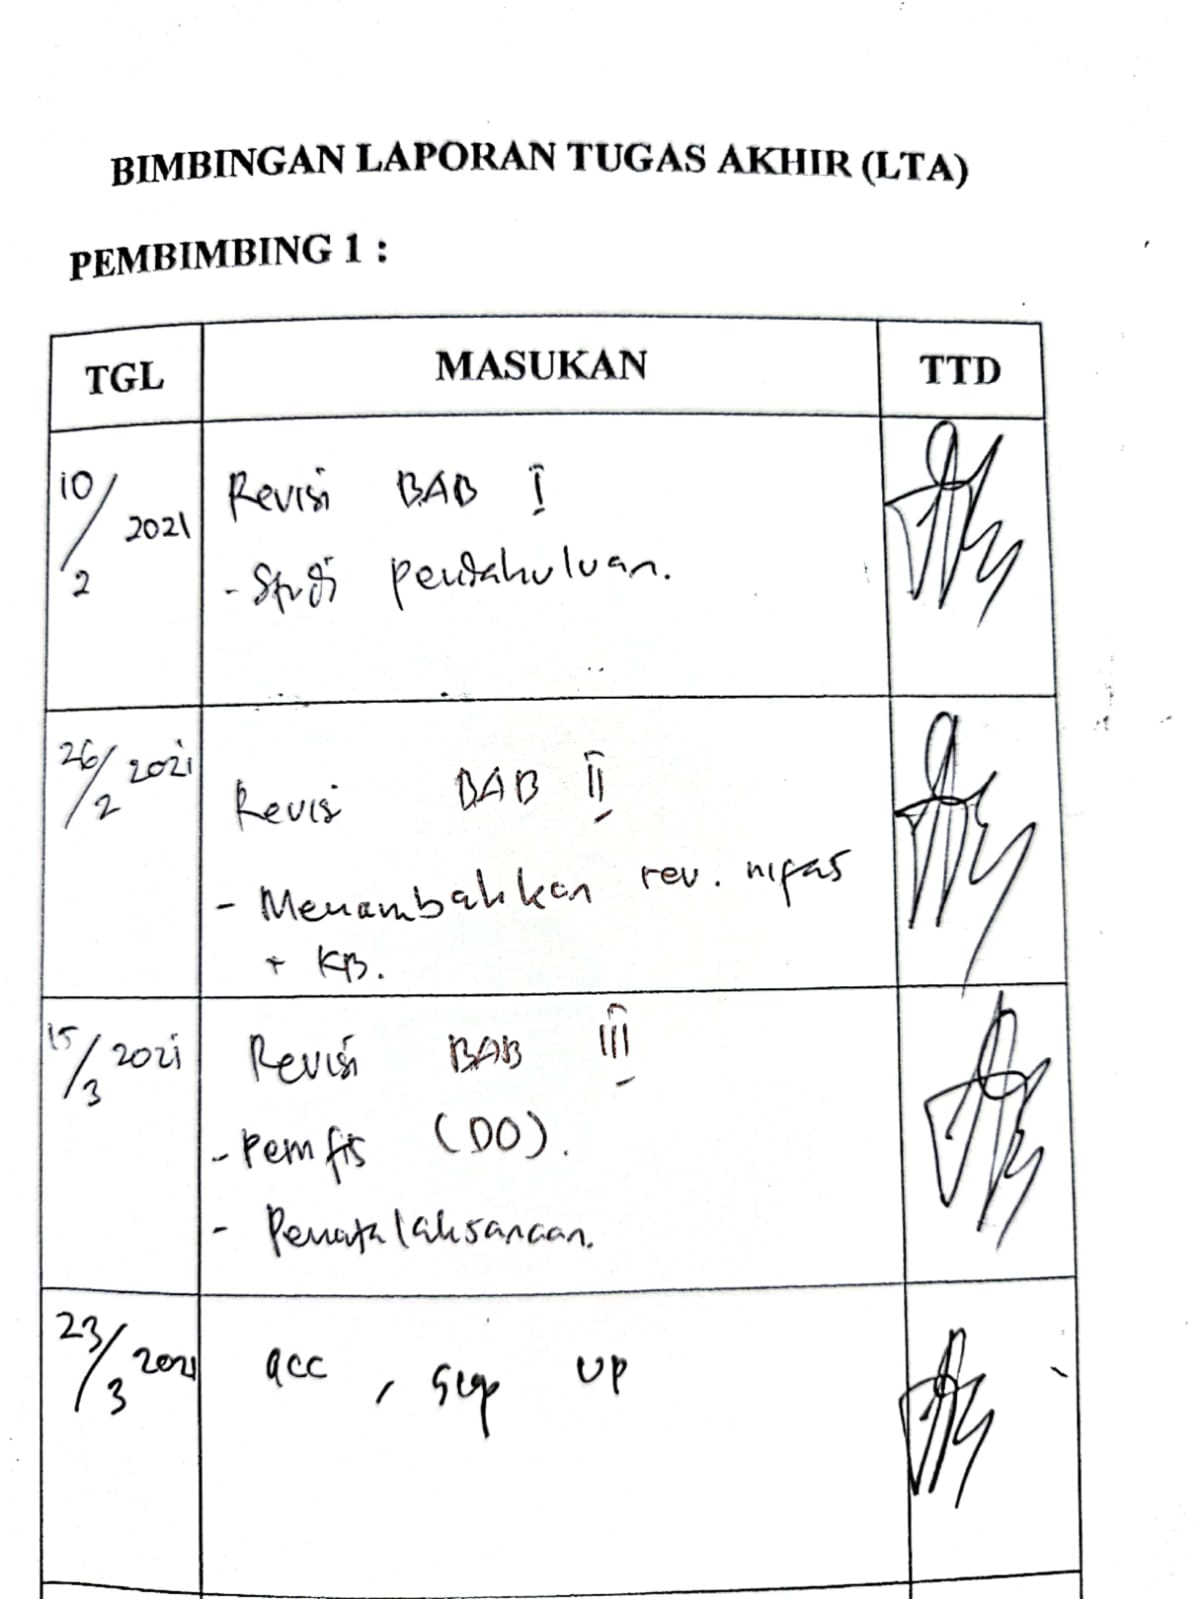 BIMBINGAN LAPORAN TUGAS AKHIR (LTA)
PEMBIMBING 1 :
TGL MASUKAN TTD
10/2 2021 Revisi BAB I
- Studi pendahuluan.
26/2 2021 Revisi BAB II
- Menambahkan rev. nifas
+ KB.
15/3 2021 Revisi BAB III
- Pemfis (DO).
- Penatalaksanaan.
23/3 2021 acc , siap UP